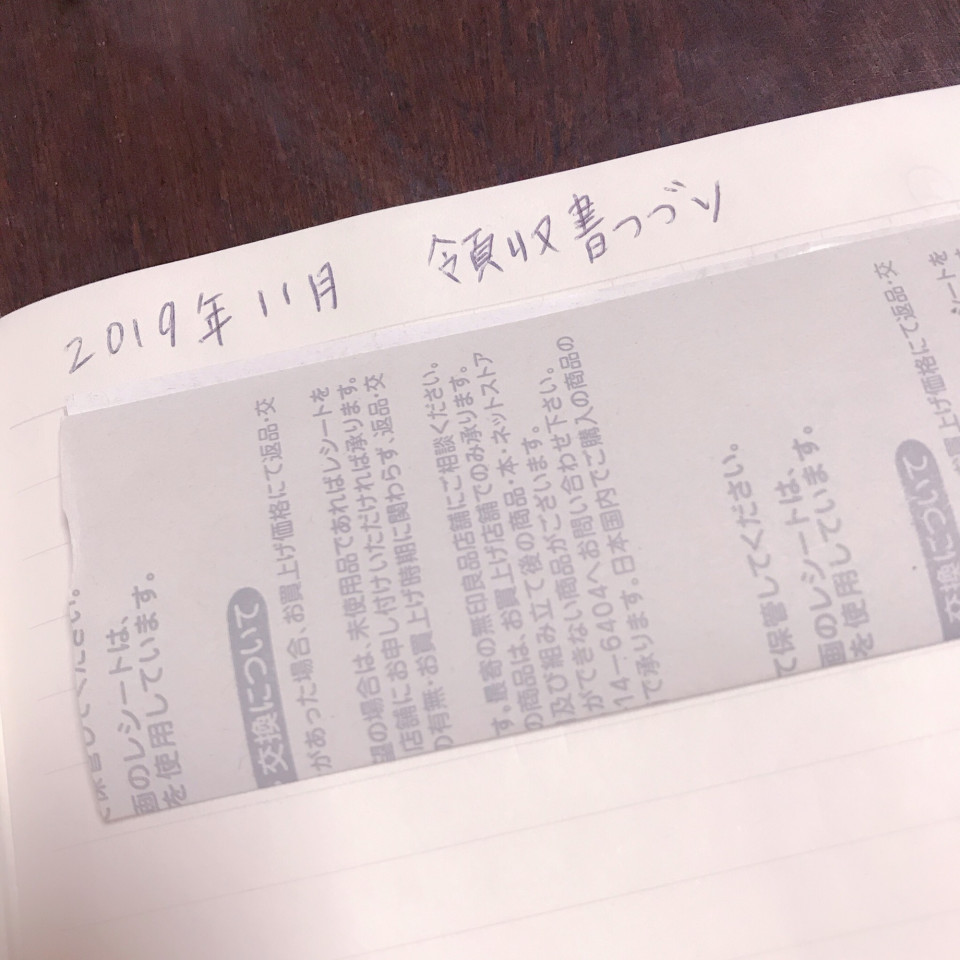 2019年11月 領収書つづり
ください。
画のレシートは、
を使用しています。
交換について
があった場合、お買上げ価格にて返品・交
望の場合は、未使用品であればレシートを
店舗にお申し付けいただければ承ります。
の有無・お買上げ時期に関わらず、返品・交
す。最寄の無印良品店舗にご相談ください。
の商品は、お買上げ店舗でのみ承ります。
及び組み立て後の商品・本・ネットストア
ができない商品がございます。
14-6404へお問い合わせ下さい。
で承ります。日本国内でご購入の商品の
て保管してください。
画のレシートは、
を使用しています。
交換について
お買上げ価格にて返品・交
シートを